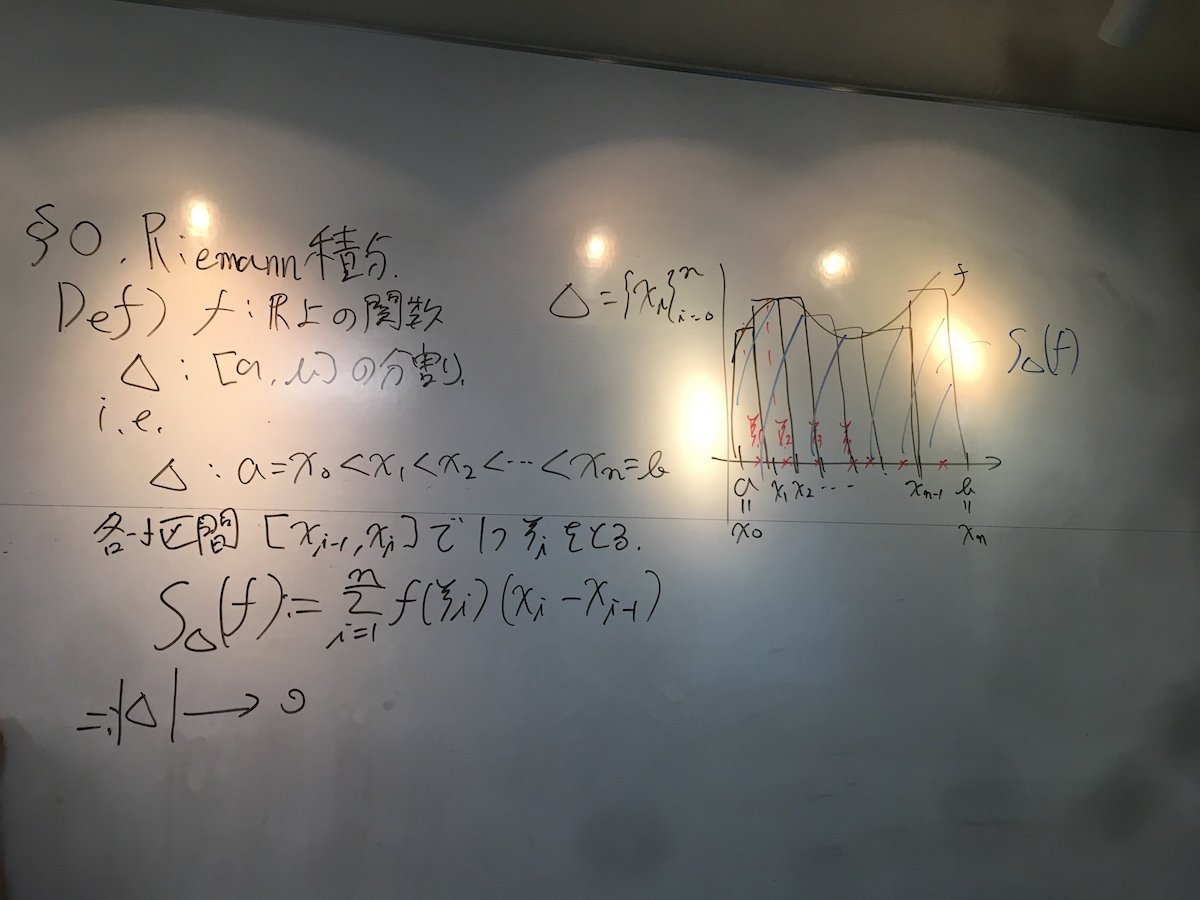 §0. Riemann積分.
Def) f : ℝ上の関数
Δ : [a, b] の分割,
i.e.
Δ : a = x₀ < x₁ < x₂ < ⋯ < xₙ = b
各小区間 [x_{i-1}, x_i] で 1つ ξ_i をとる.
S_Δ(f) := Σ_{i=1}^{n} f(ξ_i) (x_i − x_{i-1})
=: |Δ| → 0
Δ = {x_i}_{i=0}^{n}
f
S_Δ(f)
ξ₁ ξ₂ ξ₃
a x₁ x₂ ⋯ x_{n-1} b
॥ ॥
x₀ xₙ